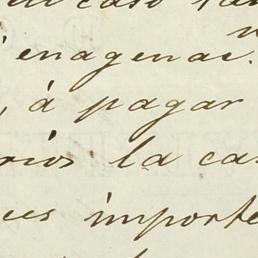 caso
enagenac.
, á pagar
rios la ca
ues importe